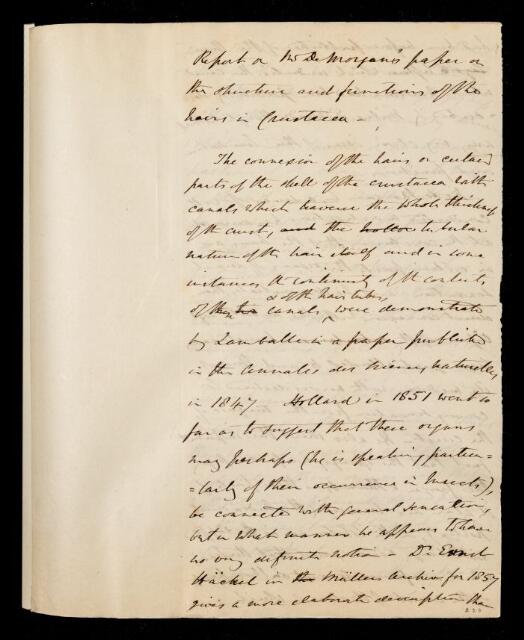 Report on Mr De Morgan's paper on
the structure and functions of the
hairs in Crustacea –
The connexion of the hairs on certain
parts of the shell of the crustacea with
canals which traverse the whole thickness
of the crust, and the hollow tubular
nature of the hair itself and in some
instances the continuity of the contents
& of the hair tubes
of the canals, were demonstrated
by Lavalle in a paper published
in the Annales des Sciences naturelles
in 1847 Hollard in 1851 went so
far as to suggest that these organs
may perhaps (he is speaking particu=
=larly of their occurrence in Insects),
be connected with general sensation,
but in what manner he appears to have
no very definite notion – Dr Ernst
Häckel in the Müllers Archiv for 1857
gives a more elaborate description than